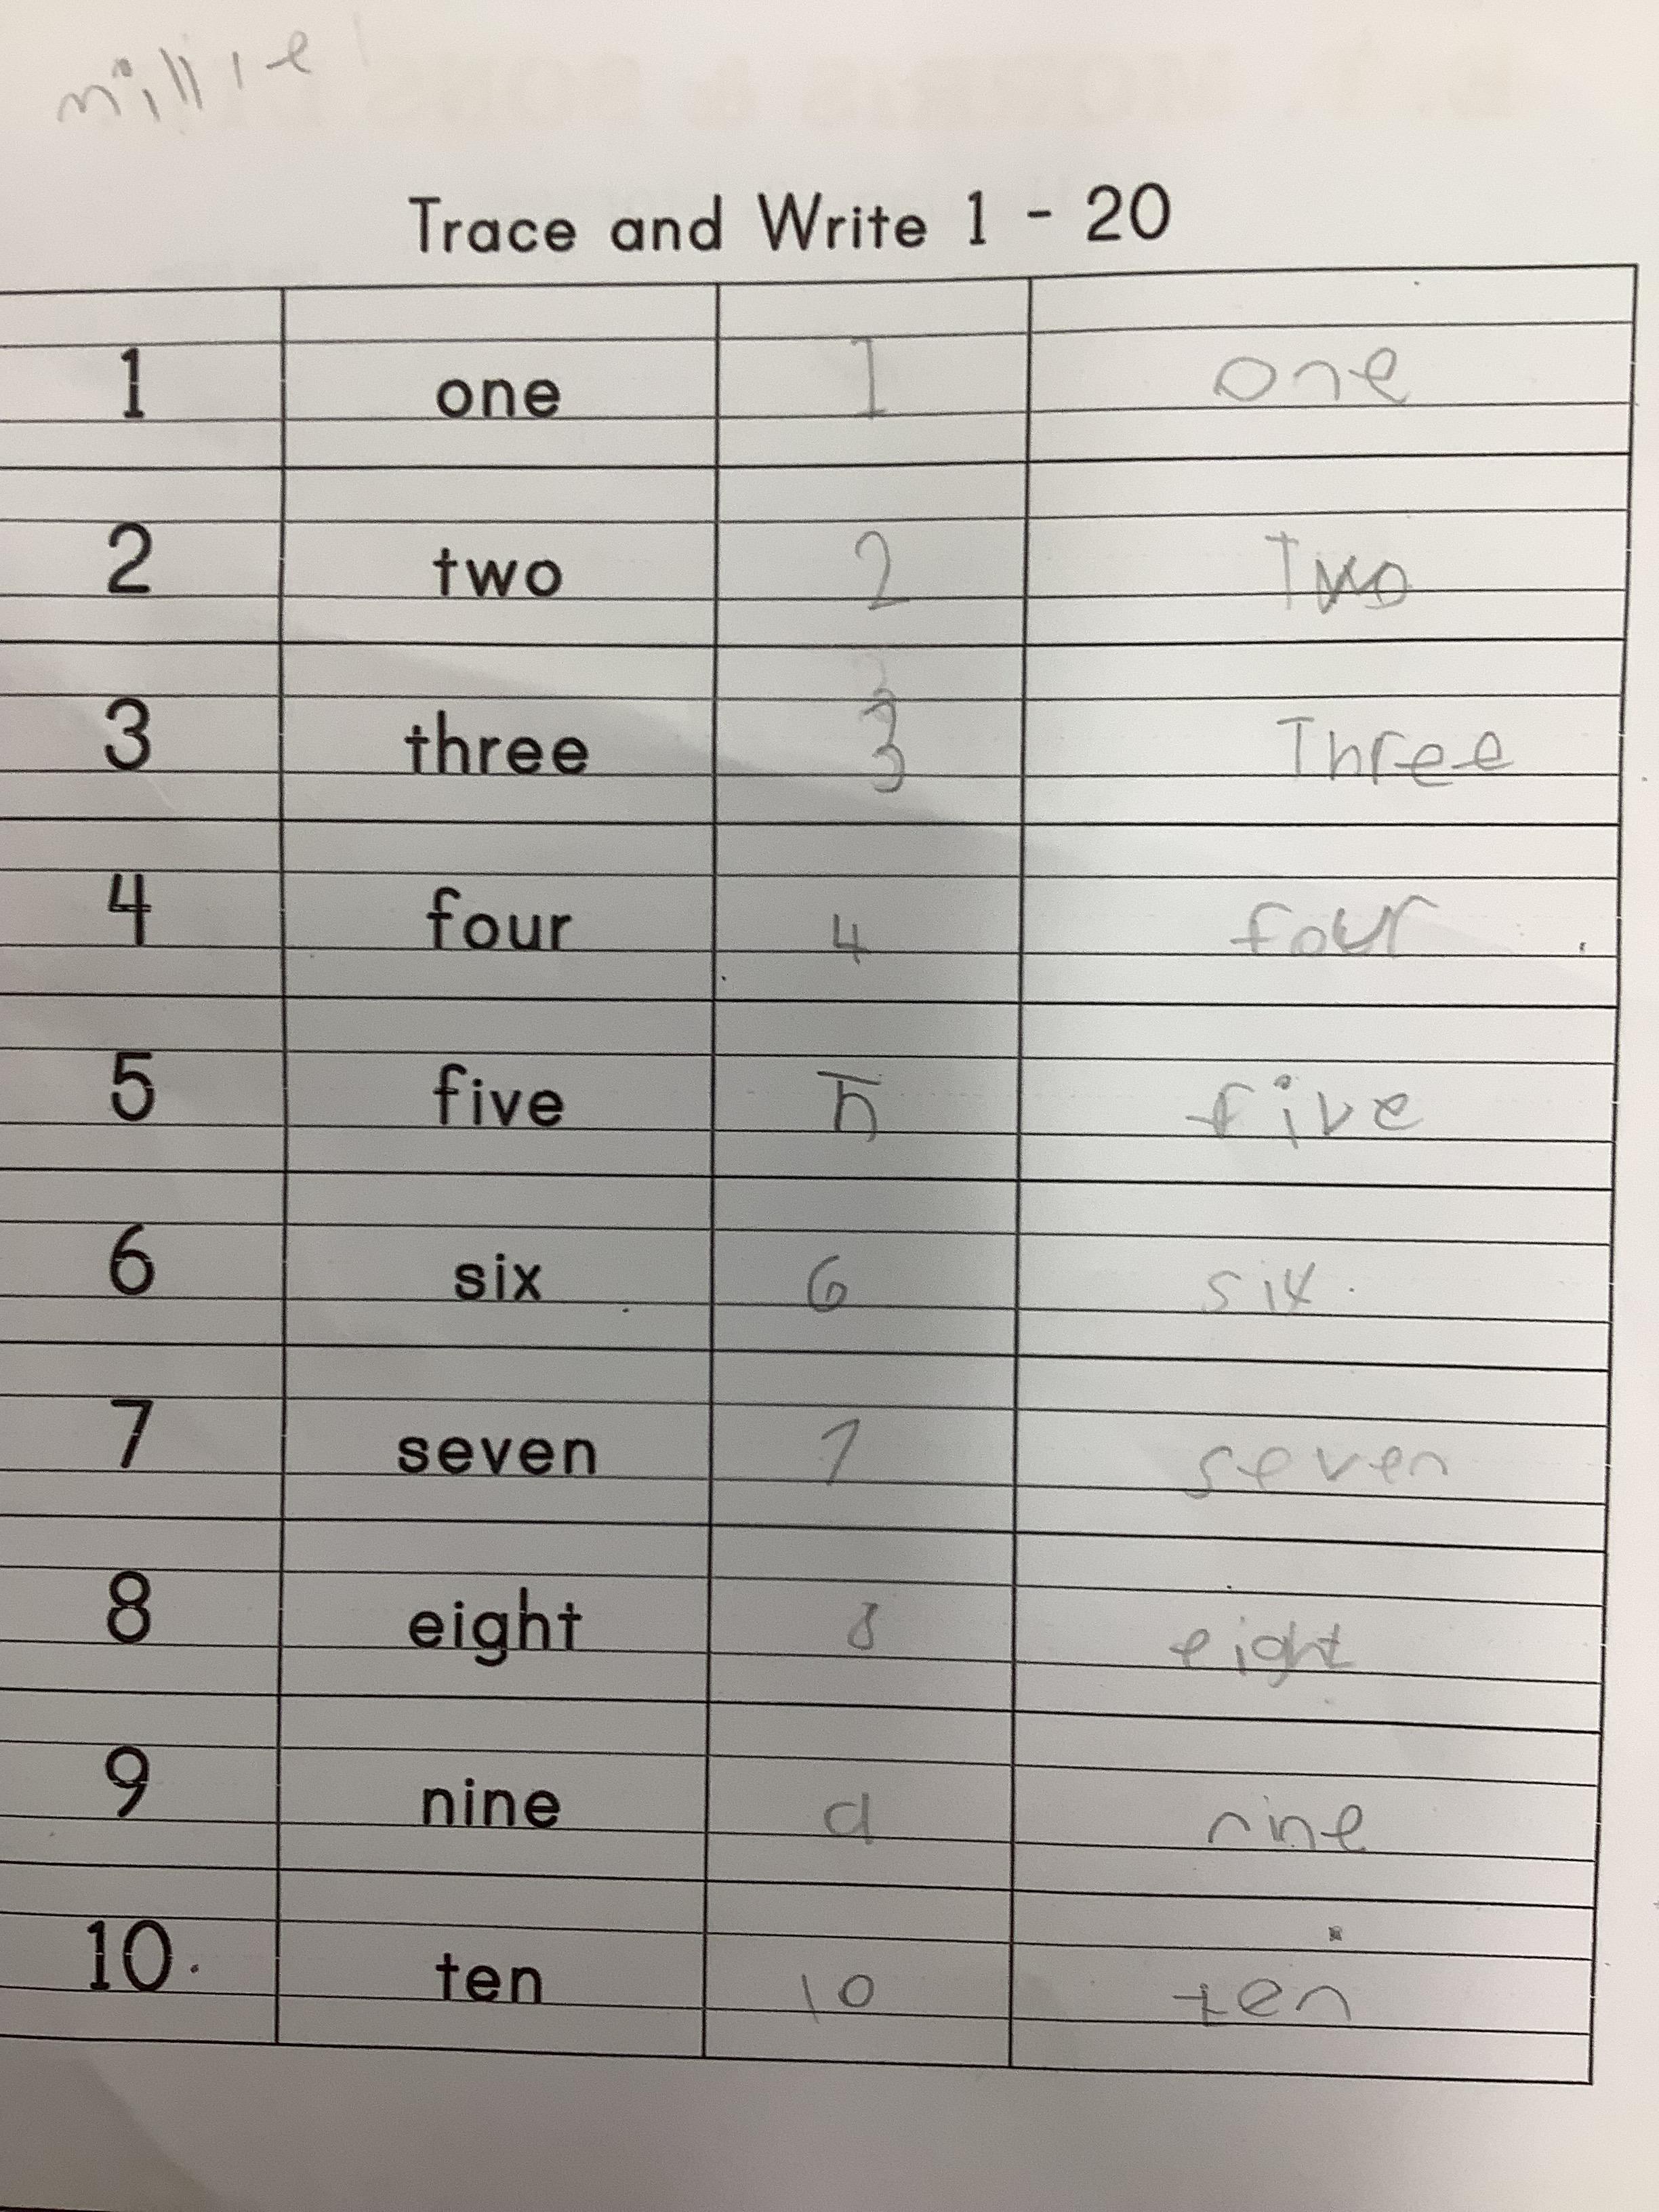 millie
Trace and Write 1 - 20
1 one 1 one
2 two 2 Two
3 three 3 Three
4 four 4 four
5 five 5 five
6 six 6 six
7 seven 7 seven
8 eight 8 eight
9 nine 9 nine
10 ten 10 ten